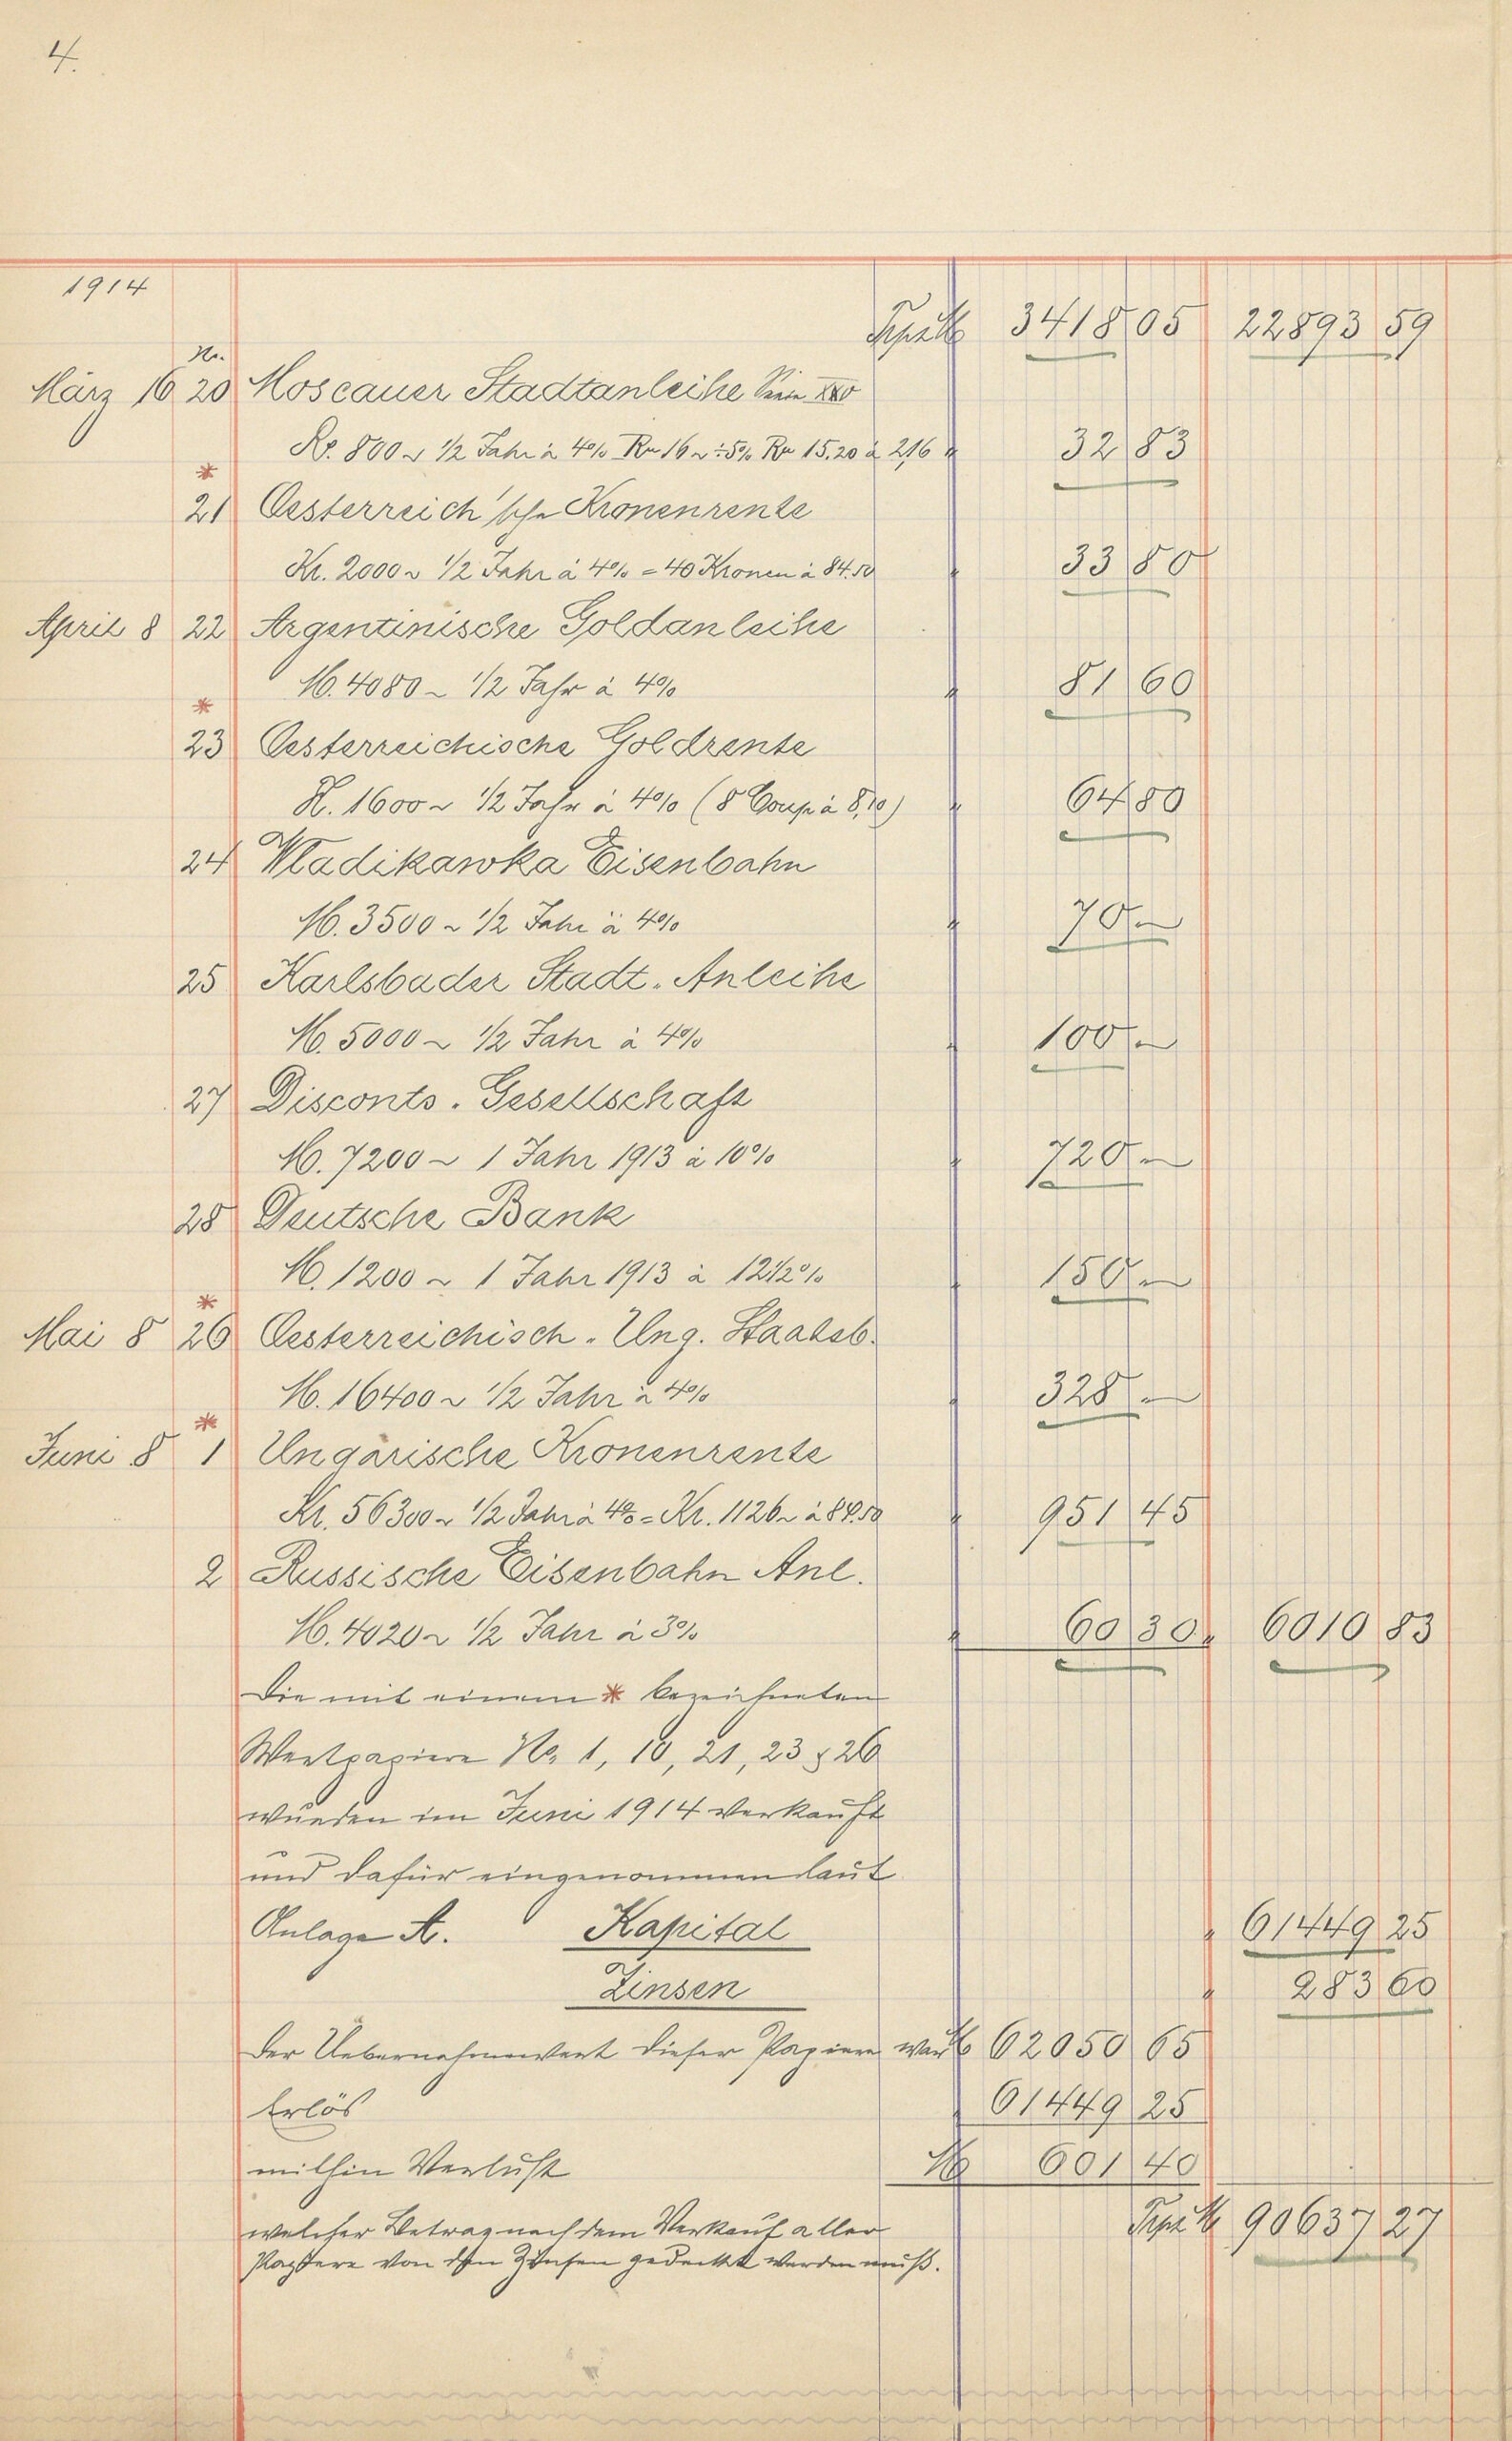 4.
1914
Transp. M 3418 05 22893 59
No.
März 16 20 Moscauer Stadtanleihe Serie
R. 800 ~ 1/2 Jahr à 4% Ru 16 ~ ÷ 5% Ru 15.20 à 2,16 " 32 83
*
21 Oesterreich'sche Kronenrente
Kr. 2000 ~ 1/2 Jahr à 4% = 40 Kronen à 84.50 " 33 80
April 8 22 Argentinische Goldanleihe
M. 4080 ~ 1/2 Jahr à 4% " 81 60
*
23 Oesterreichische Goldrente
1600 ~ 1/2 Jahr à 4% (8 Coup à 8,10) " 64 80
24 Wladikawka Eisenbahn
M. 3500 ~ 1/2 Jahr à 4% " 70 ~
25 Karlsbader Stadt-Anleihe
M. 5000 ~ 1/2 Jahr à 4% " 100 ~
27 Disconto-Gesellschaft
M. 7200 ~ 1 Jahr 1913 à 10% " 720 ~
28 Deutsche Bank
M. 1200 ~ 1 Jahr 1913 à 12 1/2% " 150 ~
*
Mai 8 26 Oesterreichisch-Ung. Staatsb.
M. 16400 ~ 1/2 Jahr à 4% " 328 ~
*
Juni 8 1 Ungarische Kronenrente
Kr. 56300 ~ 1/2 Jahr à 4% = Kr. 1126 ~ à 84.50 " 951 45
2 Russische Eisenbahn Anl.
M. 4020 ~ 1/2 Jahr à 3% " 60 30 " 6010 83
Die mit einem * bezeichneten
Wertpapiere No. 1, 10, 21, 23 & 26
wurden im Juni 1914 verkauft
und dafür eingenommen laut
Anlage A. Kapital " 61449 25
Zinsen " 283 60
Der Uebernahmewert dieser Papiere war M 62050 65
Erlös " 61449 25
mithin Verlust M 601 40
welcher Betrag nach dem Verkauf aller Transp. M 90637 27
Papiere von den Zinsen gedeckt werden muß.